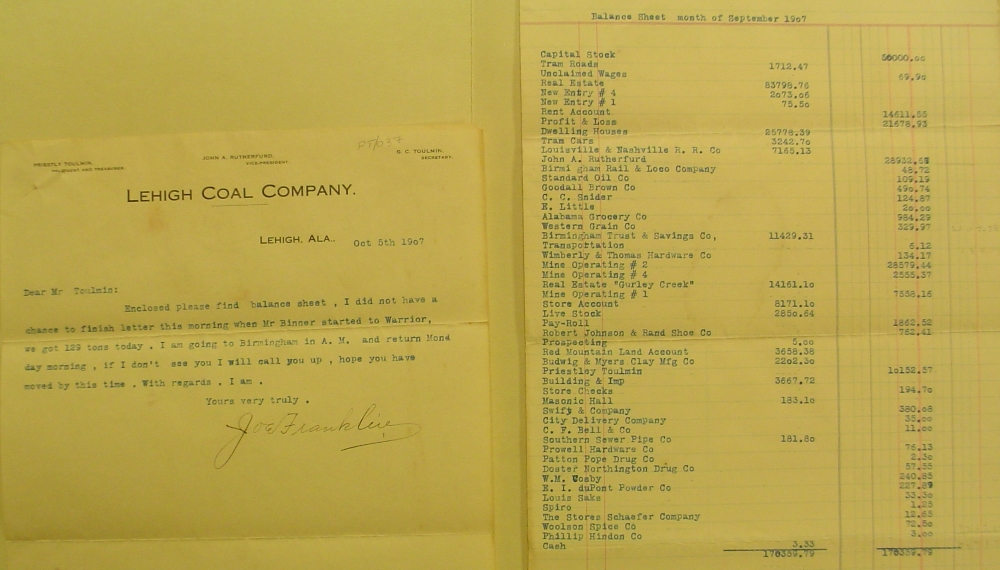 PRIESTLY TOULMIN, JOHN A. RUTHERFURD, S. C. TOULMIN,
PRESIDENT AND TREASURER. VICE-PRESIDENT. SECRETARY.
LEHIGH COAL COMPANY.
LEHIGH, ALA., Oct 5th 1907
Dear Mr Toulmin:
Enclosed please find balance sheet , I did not have a
chance to finish letter this morning when Mr Binner started to Warrior,
we got 129 tons today . I am going to Birmingham in A. M. and return Mond
day morning , if I don't see you I will call you up , hope you have
moved by this time . With regards . I am .
Yours very truly .
Joe Frank
Balance Sheet month of September 1907
Capital Stock 50000.00
Tram Roads 1712.47
Unclaimed Wages 69.90
Real Estate 83798.76
New Entry # 4 2073.06
New Entry # 1 75.50
Rent Account 14611.55
Profit & Loss 21678.93
Dwelling Houses 25778.39
Tram Cars 3242.70
Louisville & Nashville R. R. Co 7165.13
John A. Rutherfurd
Birmi gham Rail & Loco Company 48.72
Standard Oil Co 109.19
Goodall Brown Co 490.74
C. C. Snider 124.87
E. Little 20.00
Alabama Grocery Co 984.29
Western Grain Co 329.97
Birmingham Trust & Savings Co, 11429.31
Transportation 5.12
Wimberly & Thomas Hardware Co 134.17
Mine Operating # 2 28579.44
Mine Operating # 4 2555.37
Real Estate "Gurley Creek" 14161.10
Mine Operating # 1 7558.16
Store Account 8171.10
Live Stock 2850.64
Pay-Roll 1862.52
Robert Johnson & Rand Shoe Co 782.41
Prospecting 5.00
Red Mountain Land Account 3658.38
Budwig & Myers Clay Mfg Co 2202.30
Priestley Toulmin 10152.57
Building & Imp 3667.72
Store Checks 194.70
Masonic Hall 183.10
Swift & Company 380.08
City Delivery Company 35.00
C. F. Bell & Co 11.00
Southern Sewer Pipe Co 181.80
Prowell Hardware Co 76.13
Patton Pope Drug Co 2.30
Doster Northington Drug Co 57.55
W.M. Cosby 240.85
E. I. duPont Powder Co
Louis Saks 33.30
Spiro 1.25
The Stores Schaefer Company 12.65
Woolson Spice Co 72.50
Phillip Hindon Co 3.00
Cash 3.33
170359.79 170359.79